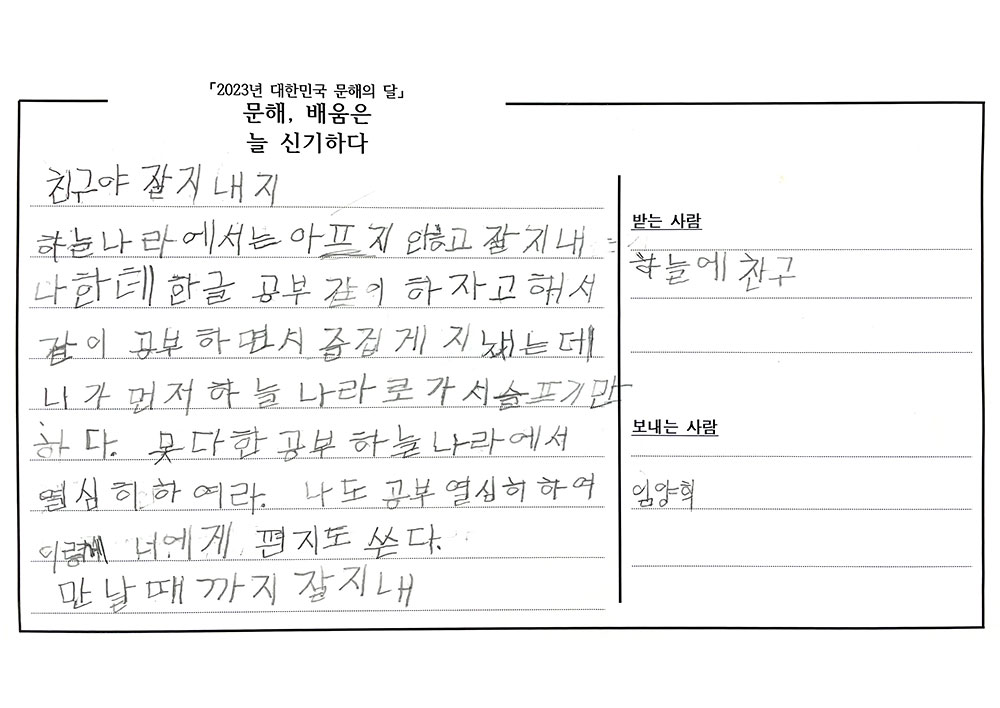 「2023년 대한민국 문해의 달」
문해, 배움은
늘 신기하다
친구야 잘지내지
하늘나라에서는 아프지 않고 잘지내
나한테 한글 공부 같이 하자고 해서
같이 공부하면서 즐겁게 지냈는데
니가 먼저 하늘나라로 가서 슬프기만
하다. 못다한 공부 하늘나라에서
열심히하여라. 나도 공부 열심히하여
이렇게 너에게 편지도 쓴다.
만날때까지 잘지내
받는 사람
하늘에 친구
보내는 사람
임양희